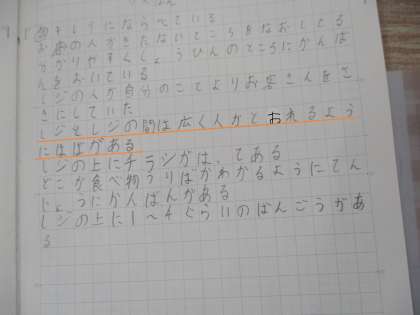 すしうにならべている
お店の人がきたないところをなおしてる
かりやすくしょうひんのところにかんば
んをおいている
レジの人が自分のことよりお客さんをさ
きにしていた
レジとレジの間は広く人がとおれるよう
にはばがある
レジの上にチラシがはってある
どこが食べ物うりばかわかるようにてん
じょうにかんばんがある
レジの上に1〜4ぐらいのばんごうがあ
る